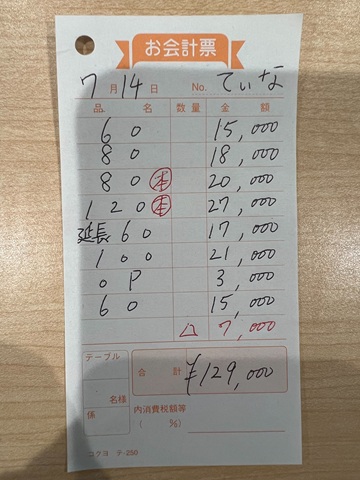 お会計票
7月14日 No. てぃな
品名 数量 金額
60 15,000
80 18,000
80 ㊍ 20,000
120 ㊍ 27,000
延長60 17,000
100 21,000
OP 3,000
60 15,000
△ 7,000
テーブル
合計 ¥129,000
名様
係
内消費税額等
( %)
コクヨ テ-250